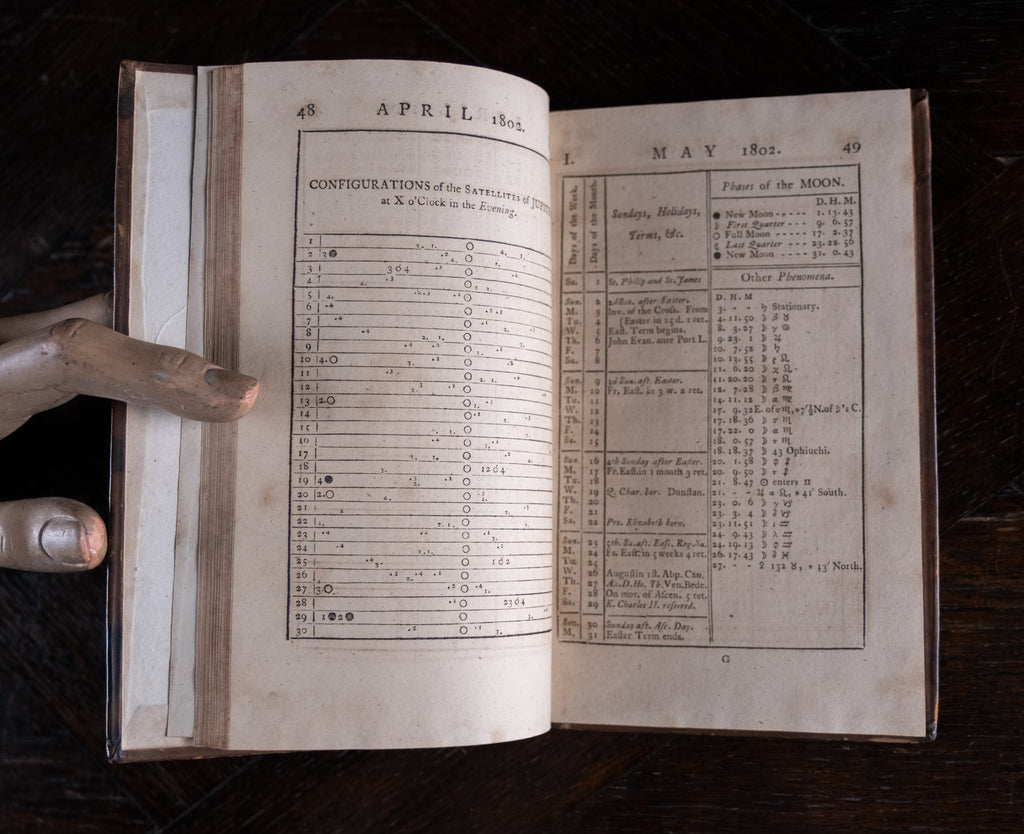 48 APRIL 1802.
CONFIGURATIONS of the SATELLITES of
at X o'Clock in the Evening.
1
2
3 3 0 4
4
5
6
7
8
9
10 4.
11
12
13 2.
14
15
16
17
18 1 2 0 4
19 4
20 2.
21
22
23
24
25 1 0 2
26
27 3.
28 2 3 0 4
29 1 2
30
I. MAY 1802. 49
Days of the Week.
Days of the Month.
Sundays, Holidays,
Terms, &c.
Phases of the MOON.
D. H. M.
New Moon - - - - - 1. 13. 43
First Quarter - - - 9. 6. 57
Full Moon - - - - 17. 2. 37
Last Quarter - - - 23. 22. 56
New Moon - - - - - 31. 0. 43
Other Phenomena.
Sa. 1 St. Philip and St. James
Sun. 2 2d Sun. after Easter.
M. 3 Inv. of the Cross. From
Tu. 4 [Easter in 15d. 1 ret.
W. 5 East. Term begins.
Th. 6 John Evan. ante Port L.
F. 7
Sa. 8
Sun. 9 3d Sun. aft. Easter.
M. 10 Fr. East. in 3 w. 2 ret.
Tu. 11
W. 12
Th. 13
F. 14
Sa. 15
Sun. 16 4th Sunday after Easter.
M. 17 Fr. East. in 1 month 3 ret.
Tu. 18
W. 19 Q. Char. bor. Dunstan.
Th. 20
F. 21
Sa. 22 Prs. Elizabeth born.
Sun. 23 5th. Su. aft. East. Rog. Su.
M. 24 Fr. East. in 5 weeks 4 ret.
Tu. 25
W. 26 Augustin 1st. Abp. Can.
Th. 27 Asc. D. Ho. Th. Ven. Bede.
F. 28 On mor. of Ascen. 5 ret.
Sa. 29 K. Charles II. restored.
Sun. 30 Sunday aft. Asc. Day.
M. 31 Easter Term ends.
D. H. M
3. - - ♄ Stationary.
4. 11. 50 ☽ β ♉
8. 3. 27 ☽ γ ♋
9. 23. 1 ☽ ♃
10. 7. 52 ☽ ♄
10. 13. 55 ☽ ρ ♌
11. 6. 20 ☽ χ ♌
11. 20. 20 ☽ τ ♌
12. 7. 28 ☽ β ♍
14. 11. 12 ☽ α ♍
17. 9. 32 E. of π ♏, * 7½ N. of ☽'s C.
17. 18. 36 ☽ σ ♏
17. 22. 0 ☽ α ♏
18. 0. 57 ☽ τ ♏
18. 18. 37 ☽ 43 Ophiuchi.
20. 1. 58 ☽ φ ♐
20. 9. 50 ☽ τ ♐
21. 8. 47 ☉ enters ♊
21. - - ♃ α ♌, * 41' South.
23. 0. 6 ☽ γ ♑
23. 3. 4 ☽ δ ♑
23. 11. 51 ☽ ι ♒
24. 9. 43 ☽ λ ♒
24. 19. 13 ☽ φ ♒
26. 17. 43 ☽ δ ♓
27. - - ♀ 132 ♉, * 13' North.
G